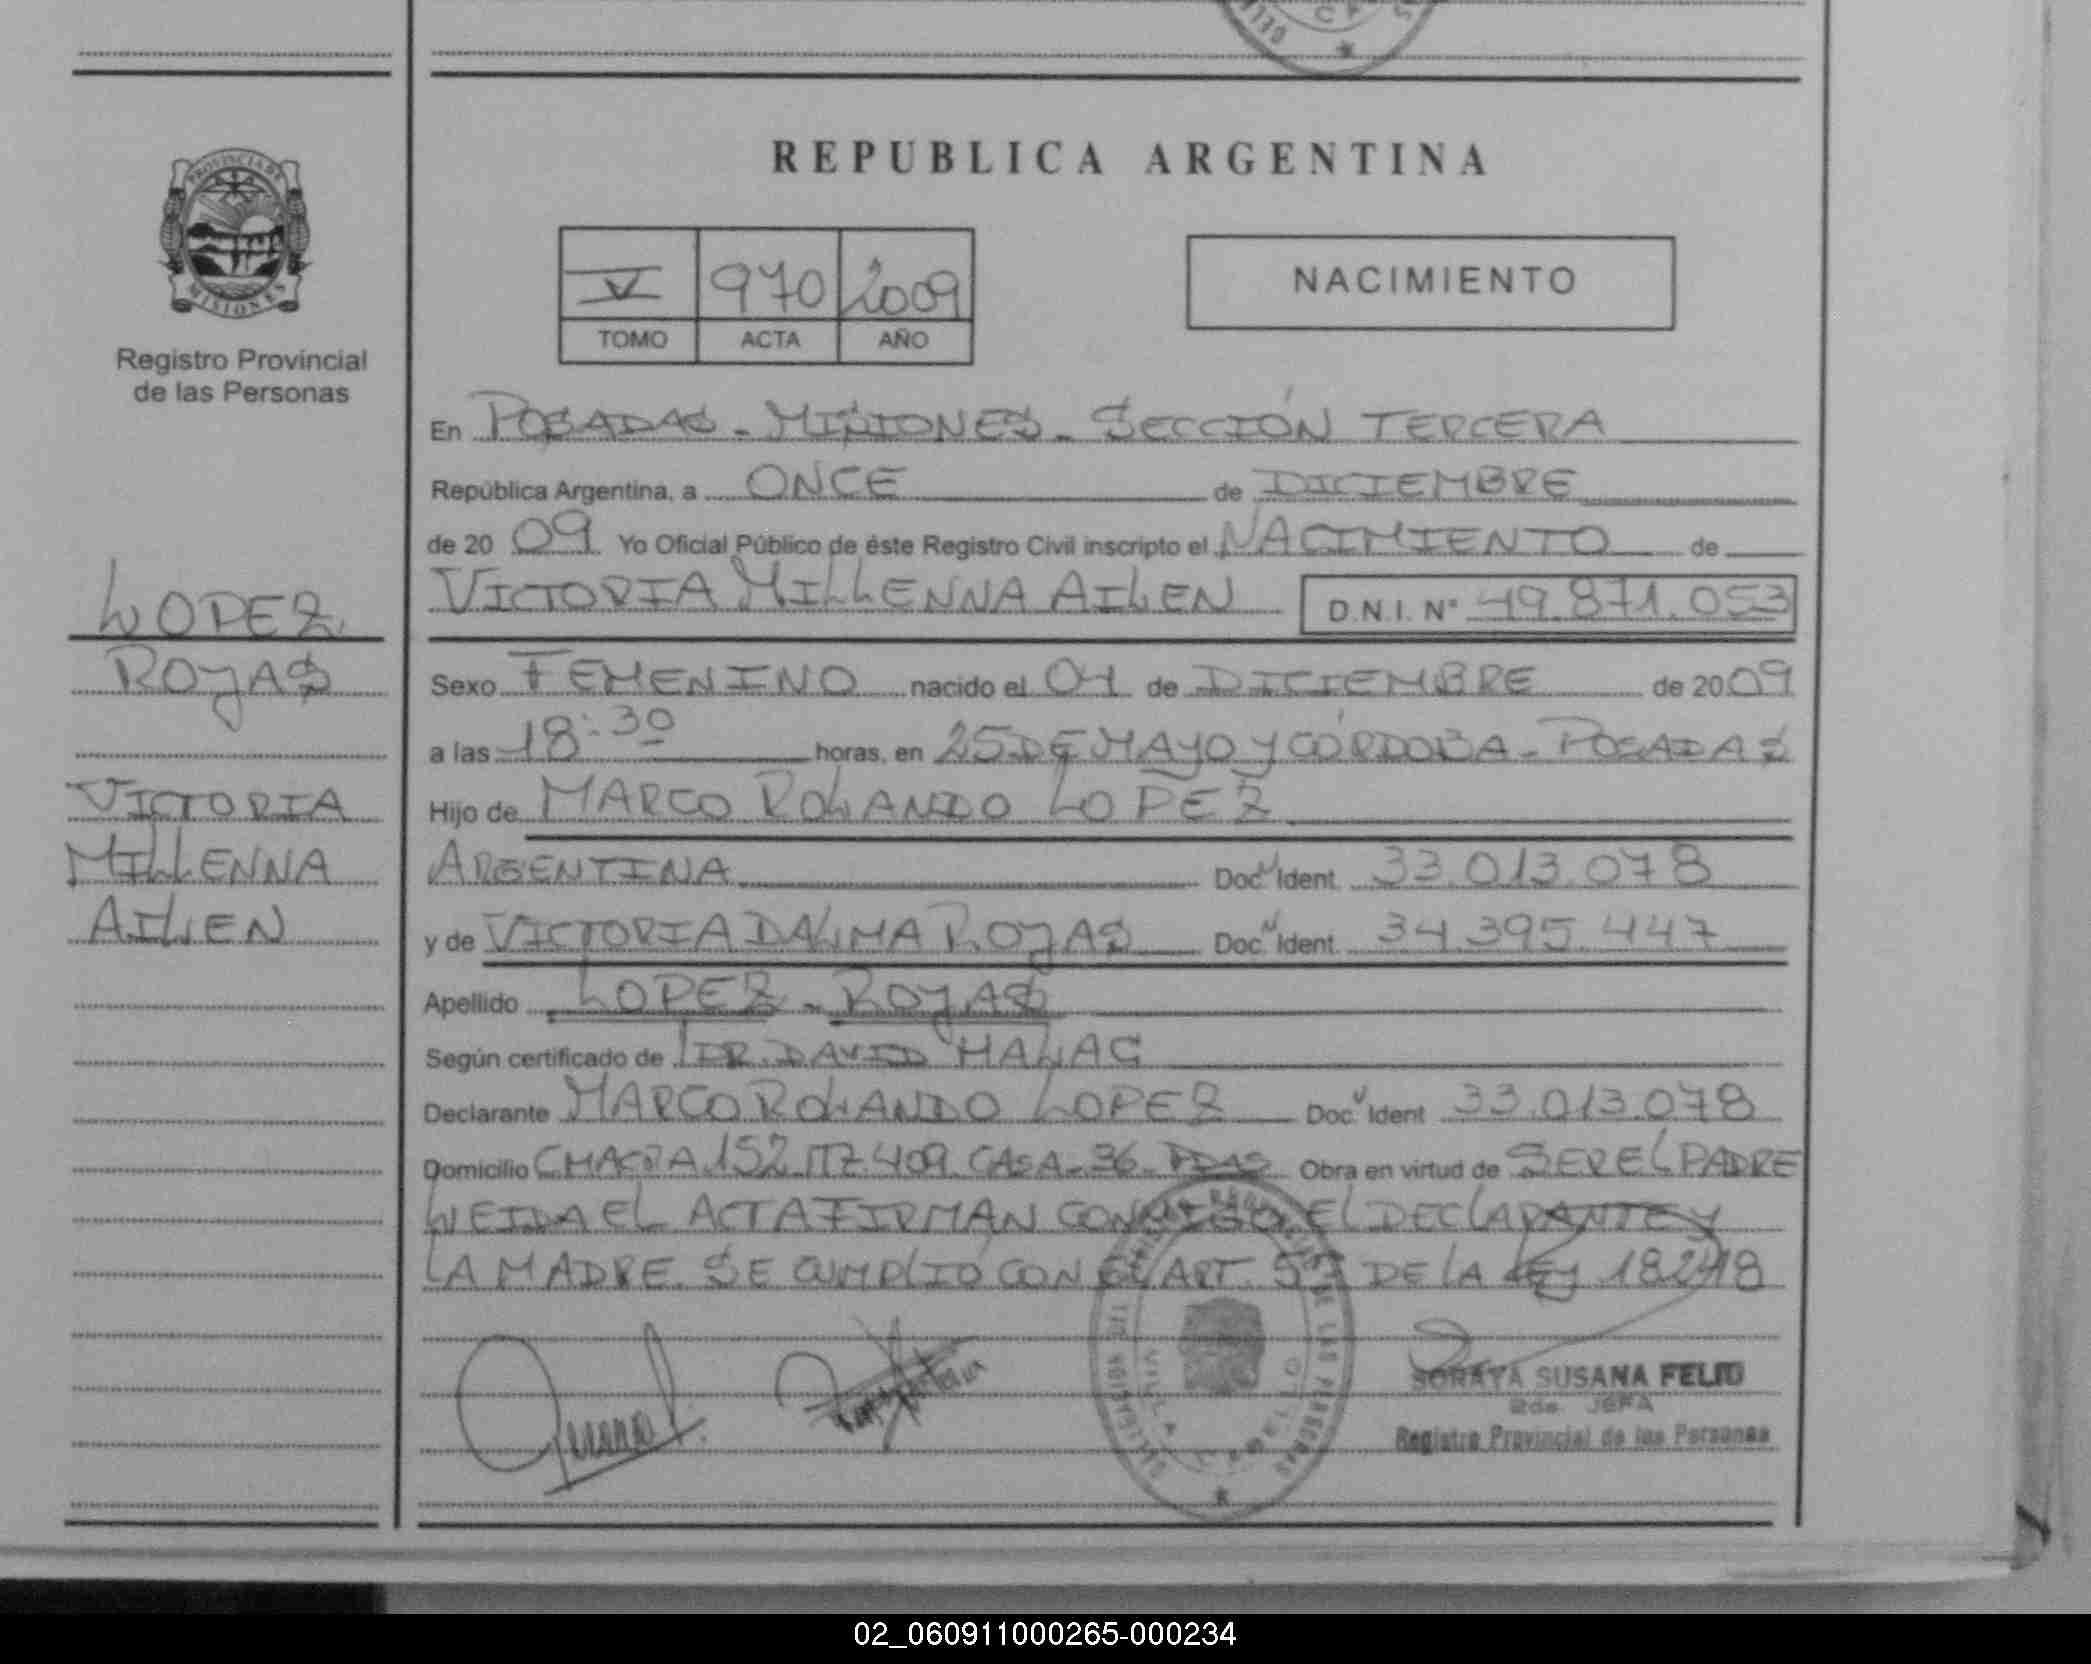 REPUBLICA ARGENTINA
PROVINCIA DE
MISIONES
Registro Provincial
de las Personas
V 970 2009
TOMO ACTA AÑO
NACIMIENTO
En POSADAS - MISIONES - SECCIÓN TERCERA
República Argentina, a ONCE de DICIEMBRE
de 20 09 Yo Oficial Público de éste Registro Civil inscripto el NACIMIENTO de
VICTORIA MILLENNA AILEN D.N.I. N° 49.871.053
LOPEZ
ROJAS
VICTORIA
MILLENNA
AILEN
Sexo FEMENINO nacido el 04 de DICIEMBRE de 2009
a las 18:30 horas, en 25 DE MAYO Y CÓRDOBA - POSADAS
Hijo de MARCO ROLANDO LOPEZ
ARGENTINA Doc. Ident. 33.013.078
y de VICTORIA DALMA ROJAS Doc. Ident. 34.395.447
Apellido LOPEZ - ROJAS
Según certificado de DR. DAVID HALAC
Declarante MARCO ROLANDO LOPEZ Doc. Ident 33.013.078
Domicilio CHACRA 152 MZ 409 CASA - 36 - PDAS Obra en virtud de SER EL PADRE
LEIDA EL ACTA FIRMAN CONMIGO EL DECLARANTE Y
LA MADRE. SE CUMPLIO CON EL ART. DE LA LEY 18248
SORAYA SUSANA FELIU
2da. JEFA
Registro Provincial de las Personas
02_060911000265-000234